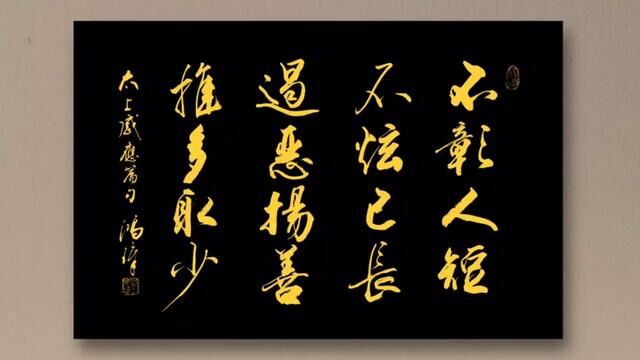 不彰人短
不炫己長
遏惡揚善
推多取少
太上感應篇句